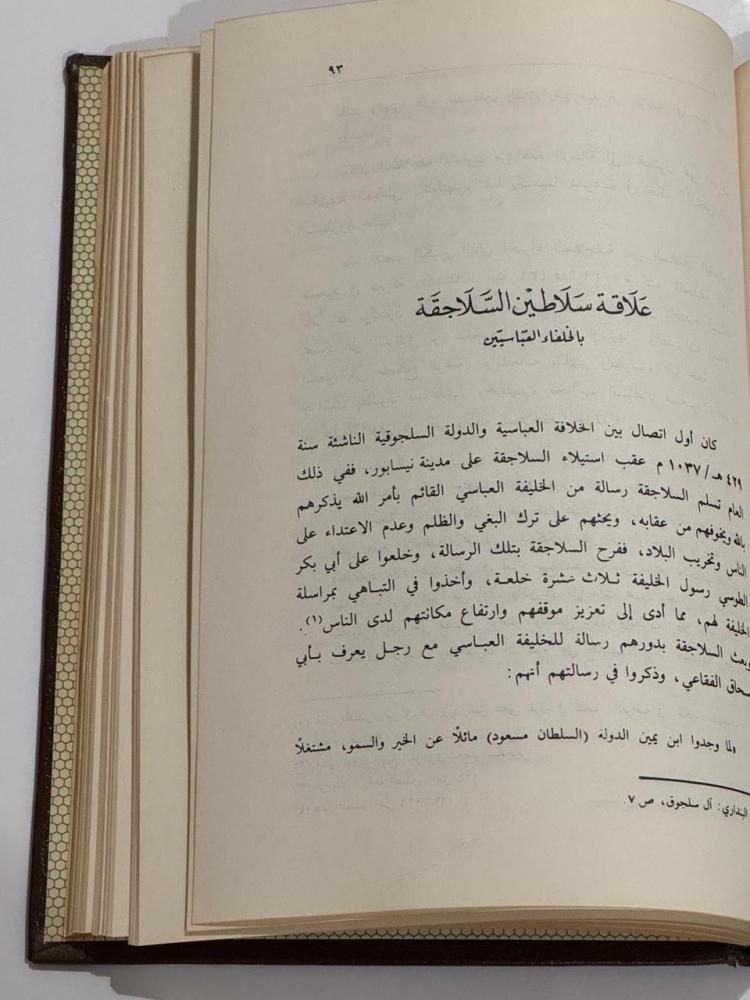 ٩٣
عَلَاقَة سَلَاطيْن السَّلَاجقَة
بالخلفاء العبّاسيّين
كان أول اتصال بين الخلافة العباسية والدولة السلجوقية الناشئة سنة
٤٢٩ هـ/١٠٣٧ م عقب استيلاء السلاجقة على مدينة نيسابور، ففي ذلك
العام تسلم السلاجقة رسالة من الخليفة العباسي القائم بأمر الله يذكرهم
بالله ويخوفهم من عقابه، ويحثهم على ترك البغي والظلم وعدم الاعتداء على
الناس وتخريب البلاد، ففرح السلاجقة بتلك الرسالة، وخلعوا على أبي بكر
الطوسي رسول الخليفة ثلاث عشرة خلعة، وأخذوا في التباهي بمراسلة
الخليفة لهم، مما أدى إلى تعزيز موقفهم وارتفاع مكانتهم لدى الناس(١).
وبعث السلاجقة بدورهم رسالة للخليفة العباسي مع رجل يعرف بأبي
سحاق الفقاعي، وذكروا في رسالتهم أنهم:
ولما وجدوا ابن يمين الدولة (السلطان مسعود) مائلًا عن الخير والسمو، مشتغلًا
البنداري: آل سلجوق، ص ٧.